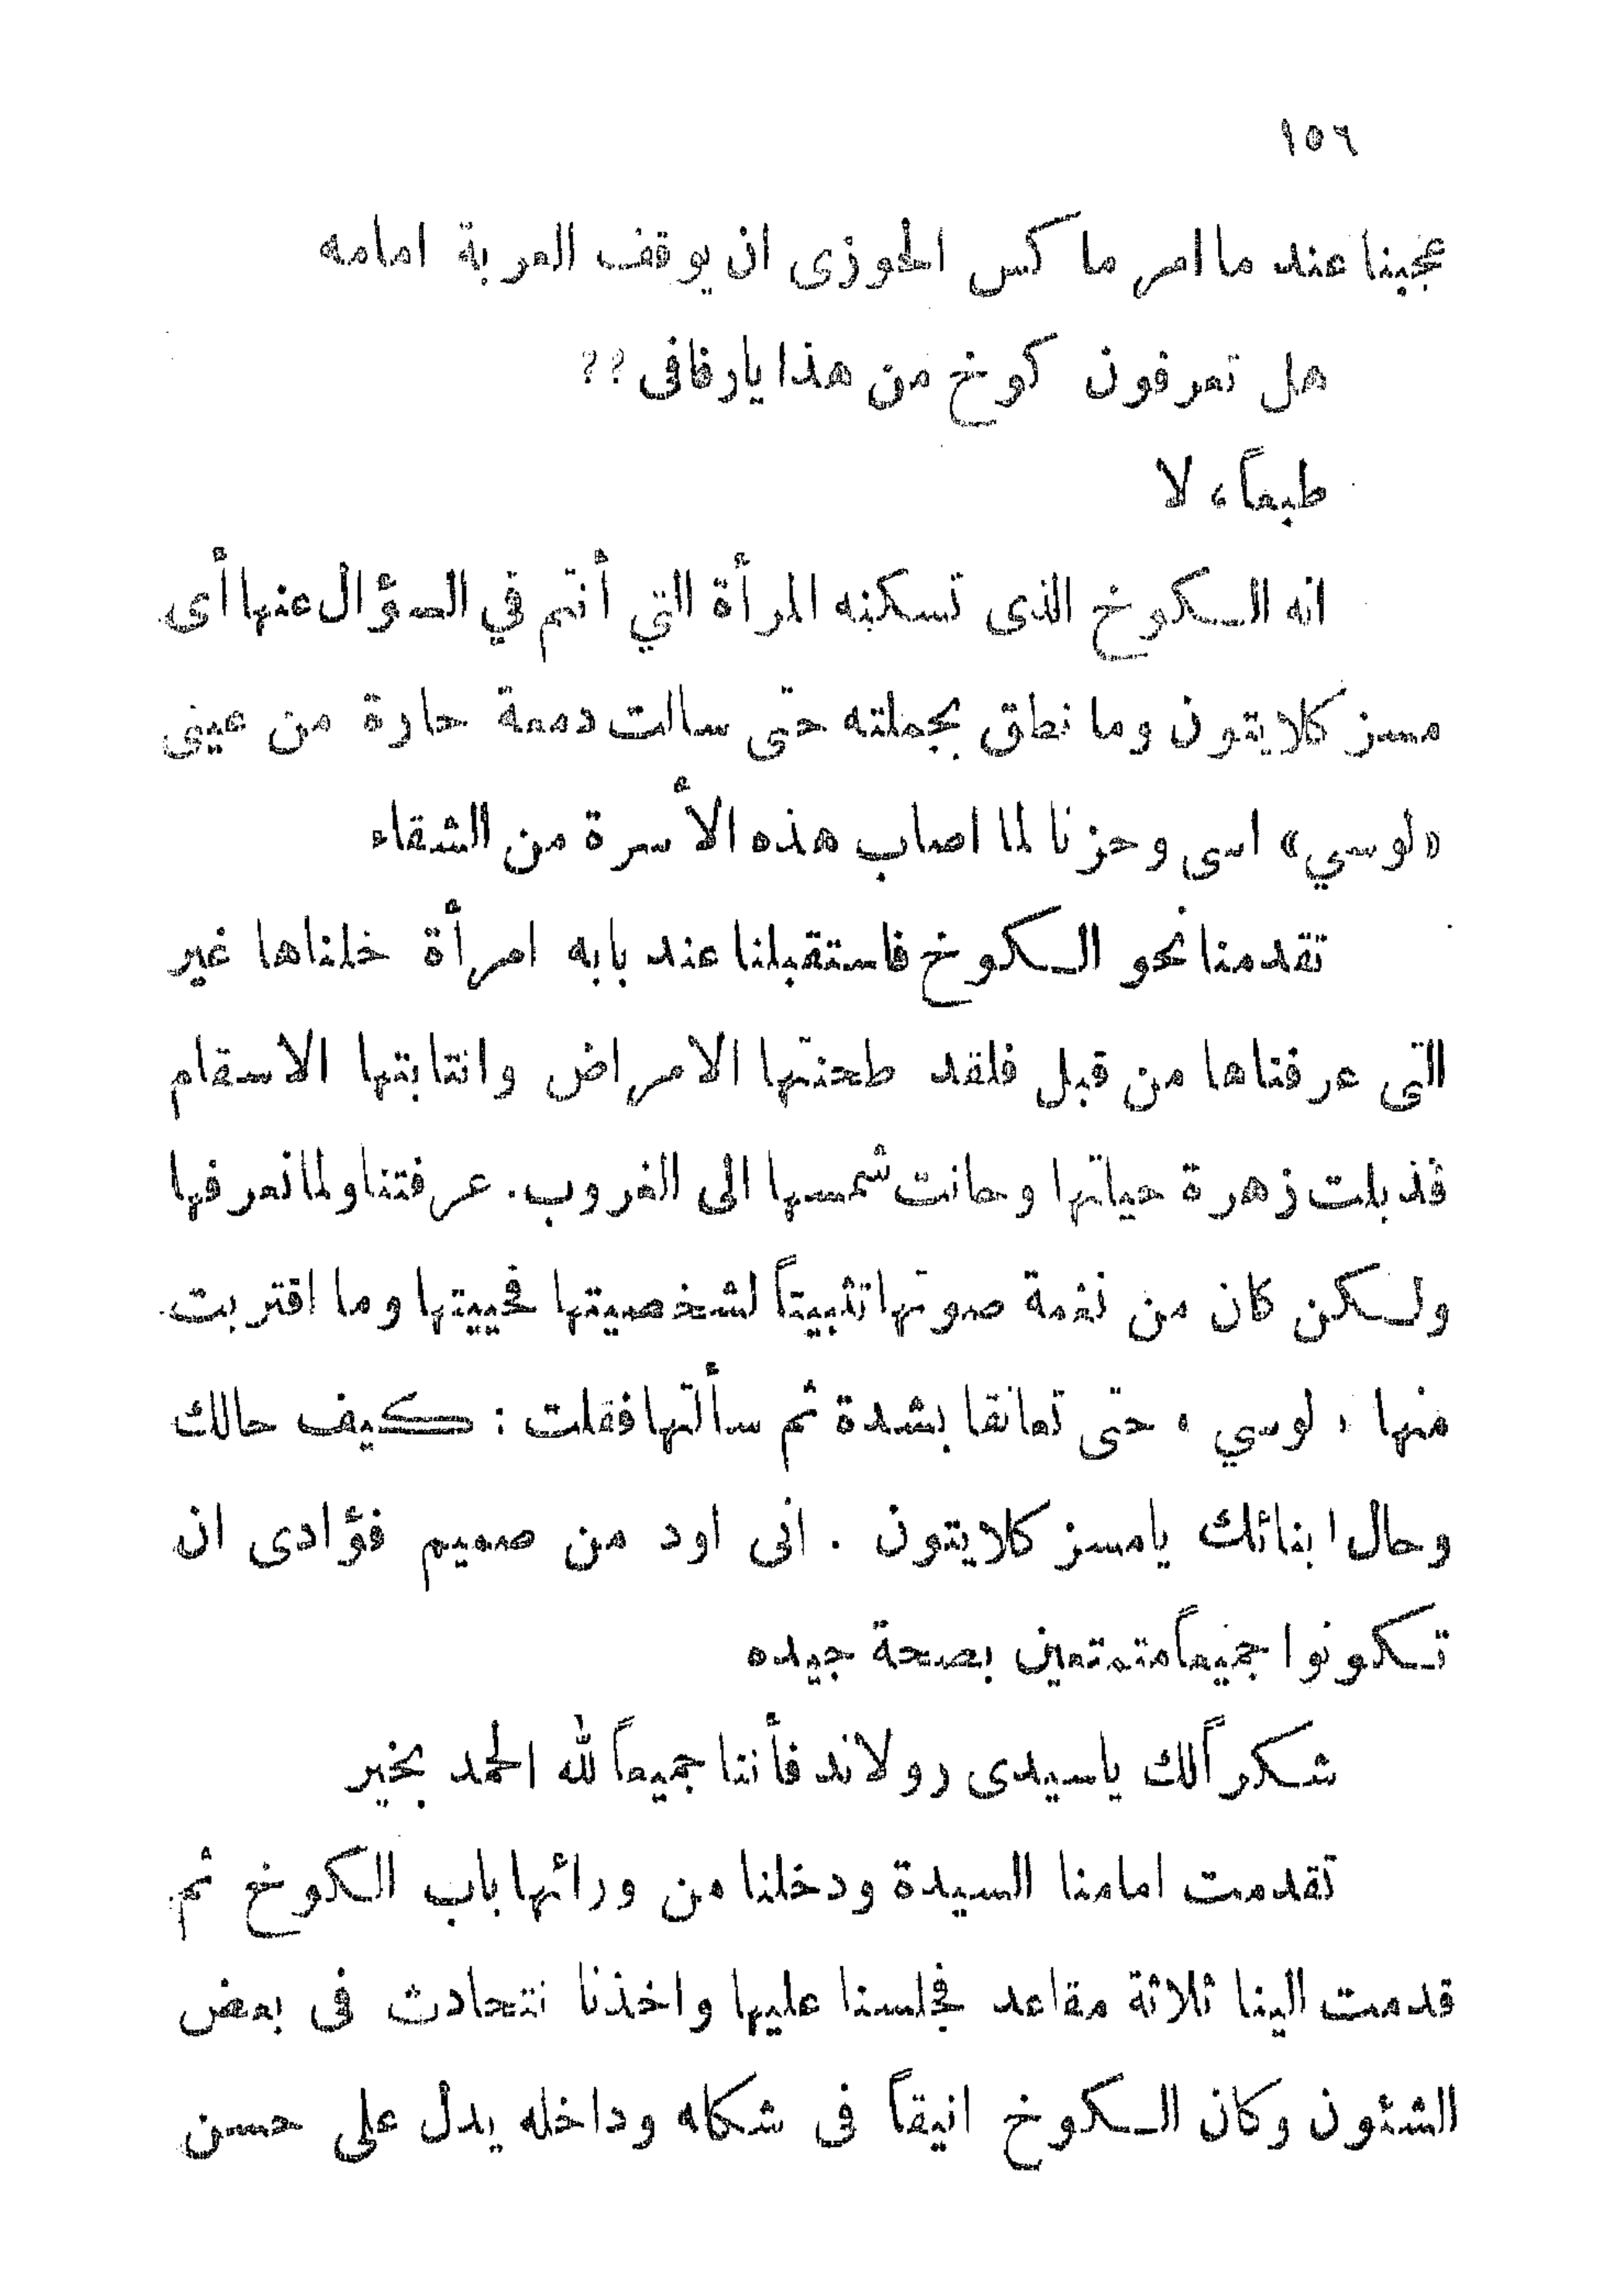 ١٥٦
عجبنا عند ما امر ماكس الحوزى ان يوقف العربة امامه
هل تعرفون كوخ من هذا يارفاقى ؟؟
طبعاً، لا
انه الكوخ الذى تسكنه المرأة التي أنتم في السؤال عنها أى
مسز كلايتون وما نطق بجملته حتى سالت دمعة حارة من عينى
«لوسي» اسى وحزنا لما اصاب هذه الأسرة من الشقاء
تقدمنا نحو الكوخ فاستقبلنا عند بابه امرأة خلناها غير
التى عرفناها من قبل فلقد طحنتها الامراض وانتابتها الاسقام
فذبلت زهرة حياتها وحانت شمسها الى الغروب. عرفتنا ولما نعرفها
ولكن كان من نغمة صوتها تثبيتاً لشخصيتها فحييتها وما اقتربت
منها «لوسي» حتى تعانقا بشدة ثم سألتها فقلت : كيف حالك
وحال ابنائك يامسز كلايتون . انى اود من صميم فؤادى ان
تكونوا جميعاً متمتعين بصحة جيده
شكراً لك ياسيدى رولاند فأننا جميعاً لله الحمد بخير
تقدمت امامنا السيدة ودخلنا من ورائها باب الكوخ ثم
قدمت الينا ثلاثة مقاعد فجلسنا عليها واخذنا نتحادث فى بعض
الشئون وكان الكوخ انيقاً فى شكله وداخله يدل على حسن